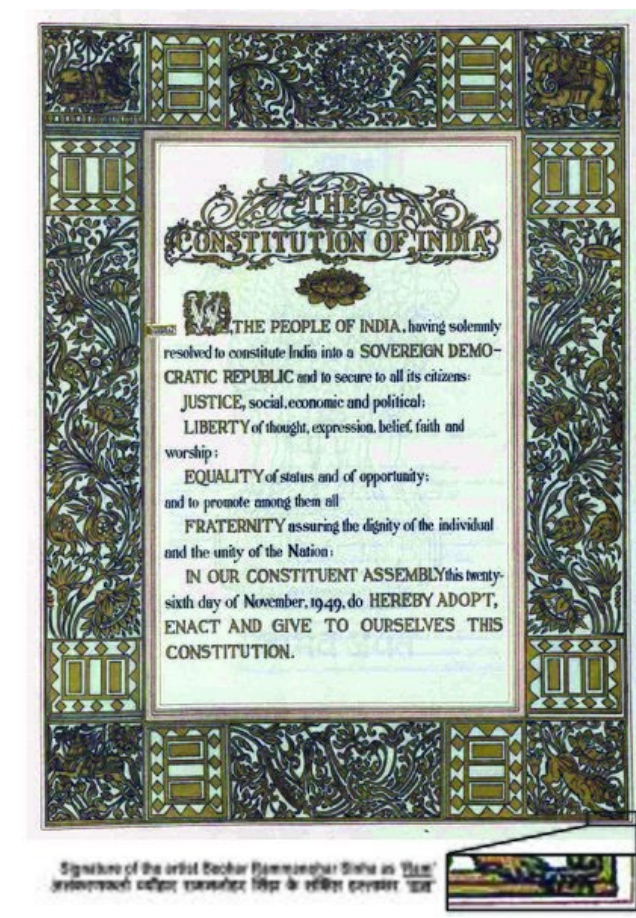 THE
CONSTITUTION OF INDIA
WE, THE PEOPLE OF INDIA, having solemnly
resolved to constitute India into a SOVEREIGN DEMO-
CRATIC REPUBLIC and to secure to all its citizens:
JUSTICE, social, economic and political;
LIBERTY of thought, expression, belief, faith and
worship;
EQUALITY of status and of opportunity;
and to promote among them all
FRATERNITY assuring the dignity of the individual
and the unity of the Nation;
IN OUR CONSTITUENT ASSEMBLY this twenty-
sixth day of November, 1949, do HEREBY ADOPT,
ENACT AND GIVE TO OURSELVES THIS
CONSTITUTION.
Signature of the artist Beohar Rammanohar Sinha as 'Ram'
के हस्ताक्षर